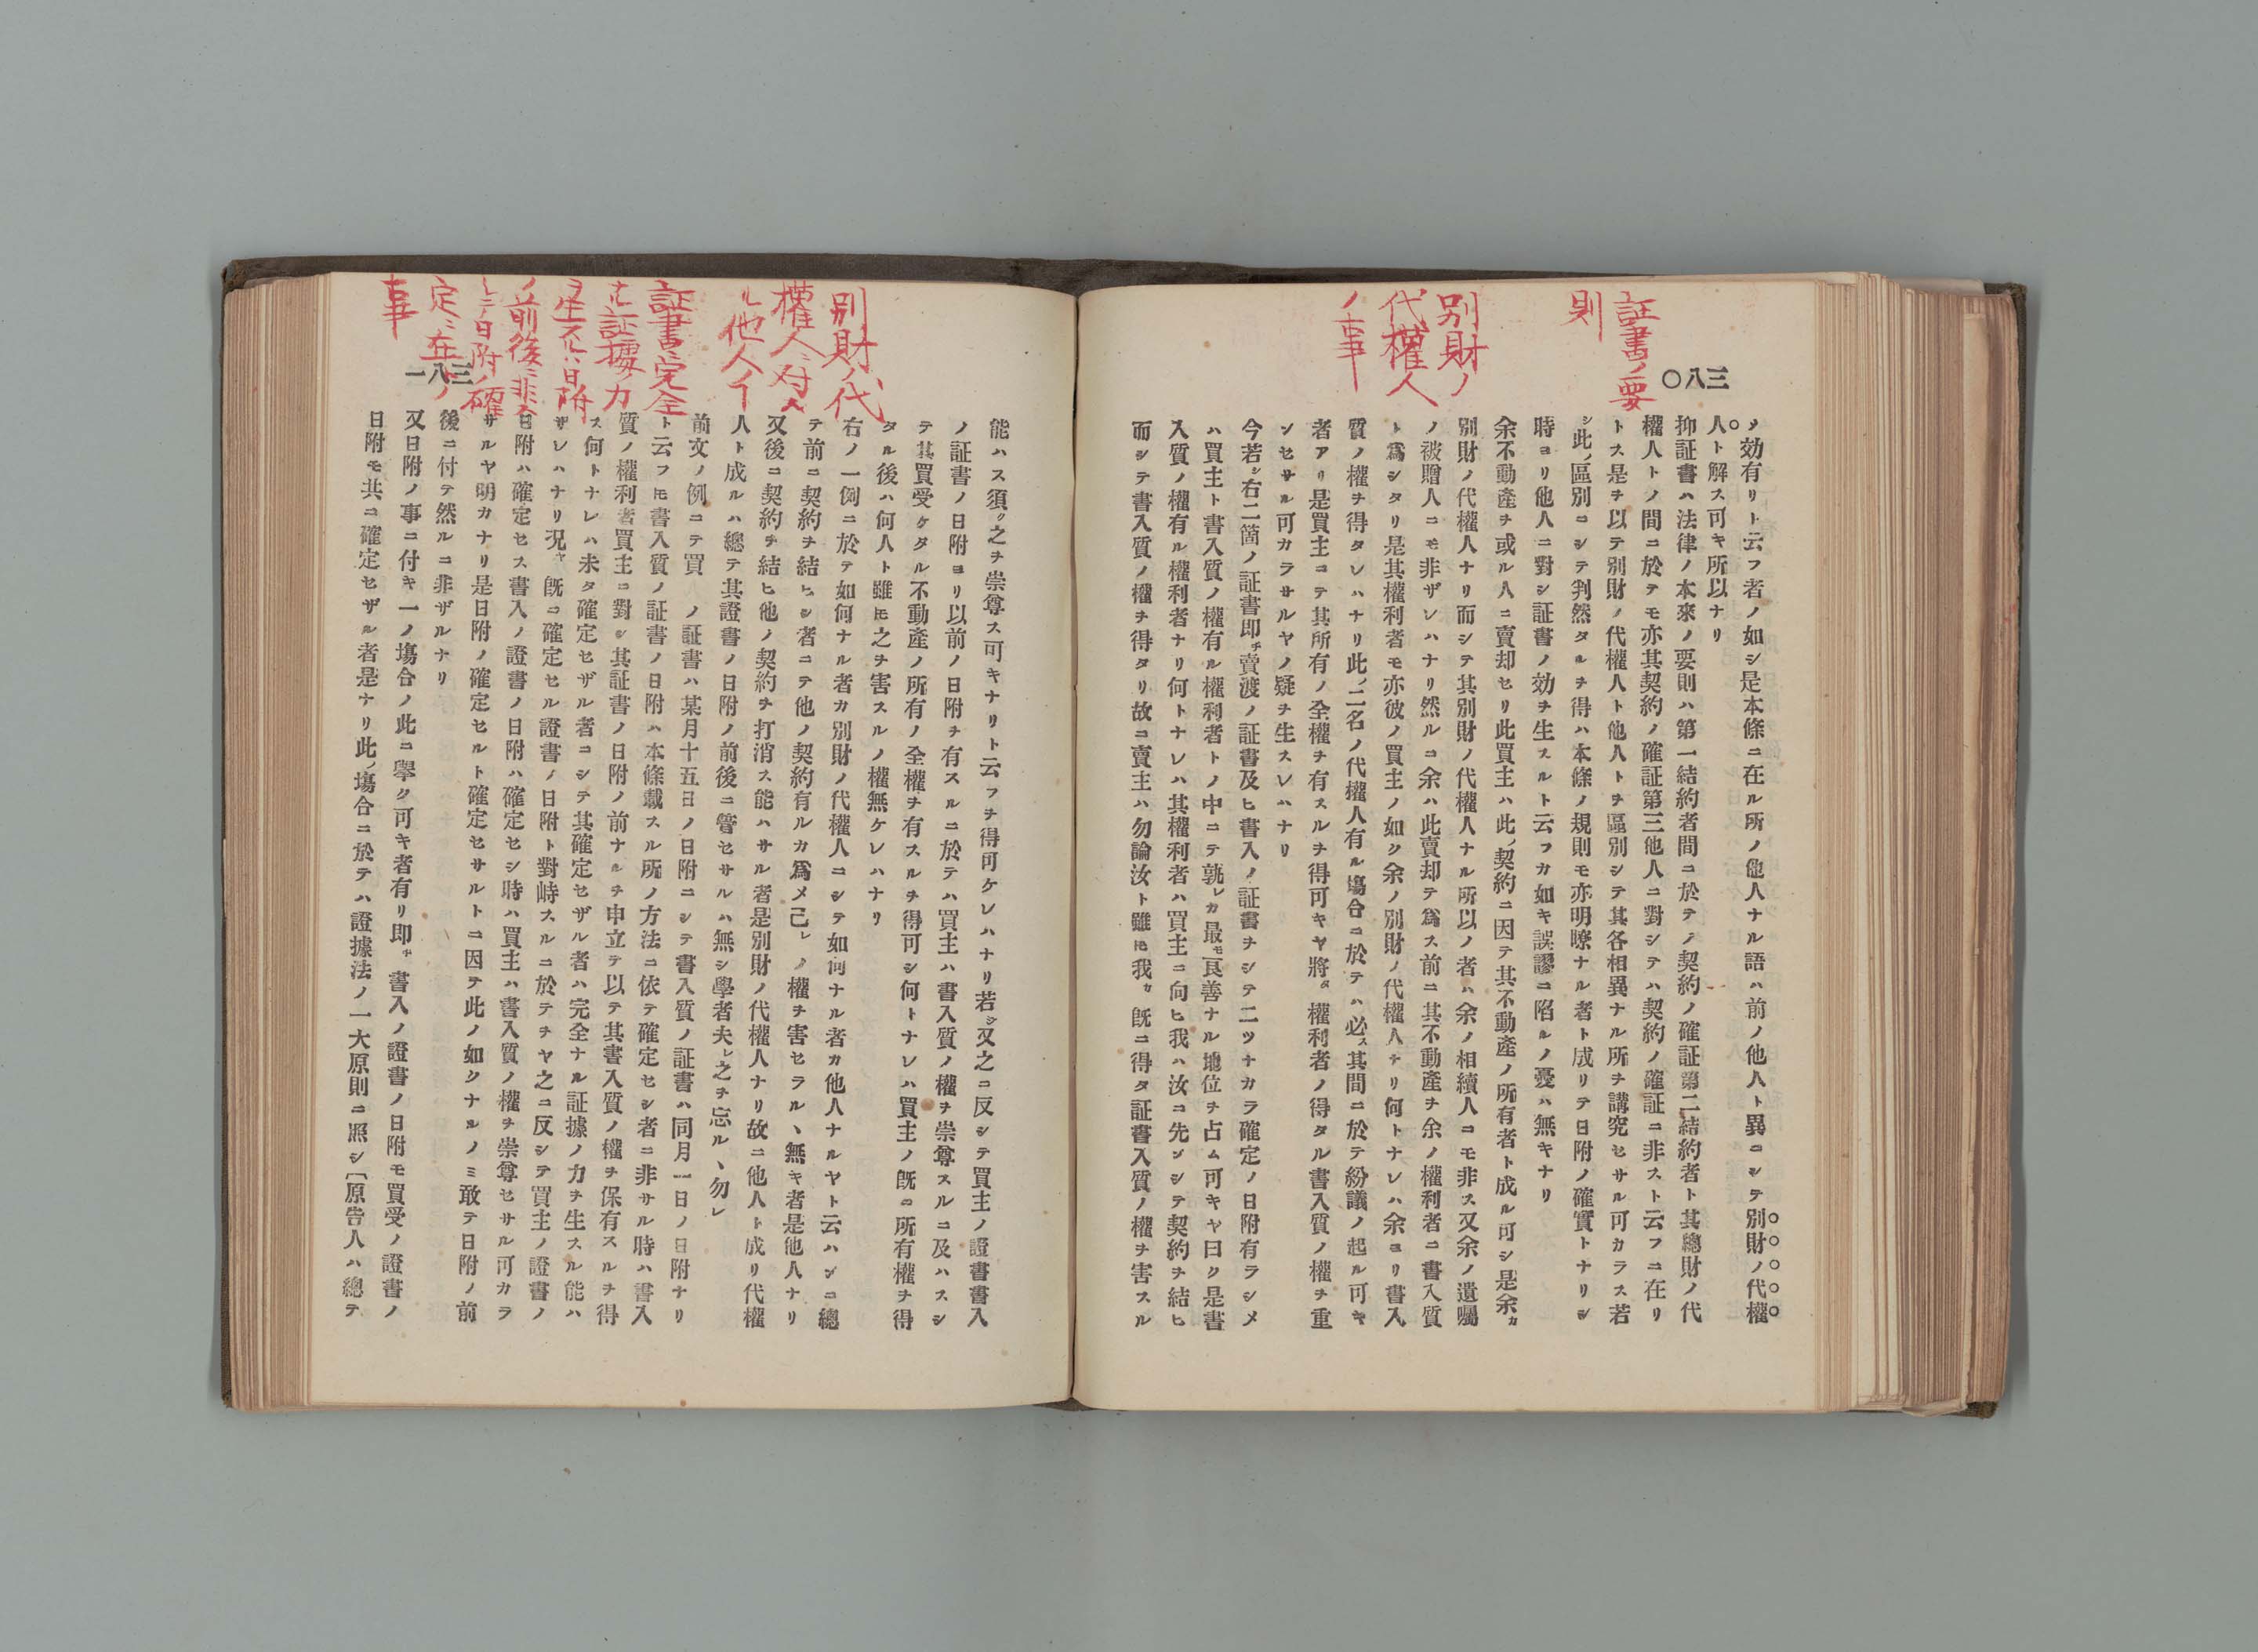 証書ノ要
則
別財ノ
代權人
ノ事
三八〇
ノ効有リト云フ者ノ如シ是本條ニ在ル所ノ他人ナル語ハ前ノ他人ト異ニシテ別財ノ代權
人ト解ス可キ所以ナリ
抑証書ハ法律ノ本來ノ要則ハ第一結約者間ニ於テノ契約ノ確証第二結約者ト其總財ノ代
權人トノ間ニ於テモ亦其契約ノ確証第三他人ニ對シテハ契約ノ確証ニ非スト云フニ在リ
トス是ヲ以テ別財ノ代權人ト他人トヲ區別シテ其各相異ナル所ヲ講究セサル可カラス若
シ此ノ區別ニシテ判然タルヲ得ハ本條ノ規則モ亦明瞭ナル者ト成リテ日附ノ確實トナリシ
時ヨリ他人ニ對シ証書ノ効ヲ生スルト云フカ如キ誤謬ニ陷ルノ憂ハ無キナリ
余不動產ヲ或ル人ニ賣却セリ此買主ハ此ノ契約ニ因テ其不動產ノ所有者ト成ル可シ是余カ
別財ノ代權人ナリ而シテ其別財ノ代權人ナル所以ノ者ハ余ノ相續人ニモ非ス又余ノ遺囑
ノ被贈人ニモ非ザレハナリ然ルニ余ハ此賣却テ爲ス前ニ其不動產ヲ余ノ權利者ニ書入質
ト爲シタリ是其權利者モ亦彼ノ買主ノ如ク余ノ別財ノ代權人ナリ何トナレハ余ヨリ書入
質ノ權ヲ得タレハナリ此ノ二名ノ代權人有ル塲合ニ於テハ必ス其間ニ於テ紛議ノ起ル可キ
者アリ是買主ニテ其所有ノ全權ヲ有スルヲ得可キヤ將タ權利者ノ得タル書入質ノ權ヲ重
ンセサル可カラサルヤノ疑ヲ生スレハナリ
今若シ右二箇ノ証書即チ賣渡ノ証書及ヒ書入ノ証書ヲシテ二ツナカラ確定ノ日附有ラシメ
ハ買主ト書入質ノ權有ル權利者トノ中ニテ孰レカ最モ良善ナル地位ヲ占ム可キヤ曰ク是書
入質ノ權有ル權利者ナリ何トナレハ其權利者ハ買主ニ向ヒ我ハ汝ニ先ンシテ契約ヲ結ヒ
而シテ書入質ノ權ヲ得タリ故ニ賣主ハ勿論汝ト雖モ我カ既ニ得タ証書入質ノ權ヲ害スル
別財ノ代
權人ニ対ス
ル他人ノ
証書ニ完全
ナル証據ノ力
ヲ生スルハ日附
ノ前後ニ非ス
シテ日附ノ確
定ニ在ルノ
事
三八一
能ハス須ク之ヲ崇尊ス可キナリト云フヲ得可ケレハナリ若シ又之ニ反シテ買主ノ證書書入
ノ証書ノ日附ヨリ以前ノ日附ヲ有スルニ於テハ買主ハ書入質ノ權ヲ崇尊スルニ及ハスシ
テ其買受ケタル不動產ノ所有ノ全權ヲ有スルヲ得可シ何トナレハ買主ノ既ニ所有權ヲ得
タル後ハ何人ト雖モ之ヲ害スルノ權無ケレハナリ
右ノ一例ニ於テ如何ナル者カ別財ノ代權人ニシテ如何ナル者カ他人ナルヤト云ハンニ總
テ前ニ契約ヲ結ヒシ者ニテ他ノ契約有ルカ爲メ己レノ權ヲ害セラルヽ無キ者是他人ナリ
又後ニ契約ヲ結ヒ他ノ契約ヲ打消ス能ハサル者是別財ノ代權人ナリ故ニ他人ト成リ代權
人ト成ルハ總テ其證書ノ日附ノ前後ニ管セサルハ無シ學者夫レ之ヲ忘ルヽ勿レ
前文ノ例ニテ買 ノ証書ハ某月十五日ノ日附ニシテ書入質ノ証書ハ同月一日ノ日附ナリ
ト云フモ書入質ノ証書ノ日附ハ本條載スル所ノ方法ニ依テ確定セシ者ニ非サル時ハ書入
質ノ權利者買主ニ對シ其証書ノ日附ノ前ナルヲ申立テ以テ其書入質ノ權ヲ保有スルヲ得
ス何トナレハ未タ確定セザル者ニシテ其確定セザル者ハ完全ナル証據ノ力ヲ生スル能ハ
ザレハナリ況ヤ既ニ確定セル證書ノ日附ト對峙スルニ於テヲヤ之ニ反シテ買主ノ證書ノ
日附ハ確定セス書入ノ證書ノ日附ハ確定セシ時ハ買主ハ書入質ノ權ヲ崇尊セサル可カラ
サルヤ明カナリ是日附ノ確定セルト確定セサルトニ因テ此ノ如クナルノミ敢テ日附ノ前
後ニ付テ然ルニ非ザルナリ
又日附ノ事ニ付キ一ノ塲合ノ此ニ擧ク可キ者有リ即チ書入ノ證書ノ日附モ買受ノ證書ノ
日附モ共ニ確定セザル者是ナリ此ノ塲合ニ於テハ證據法ノ一大原則ニ照シ〔原告人ハ總テ